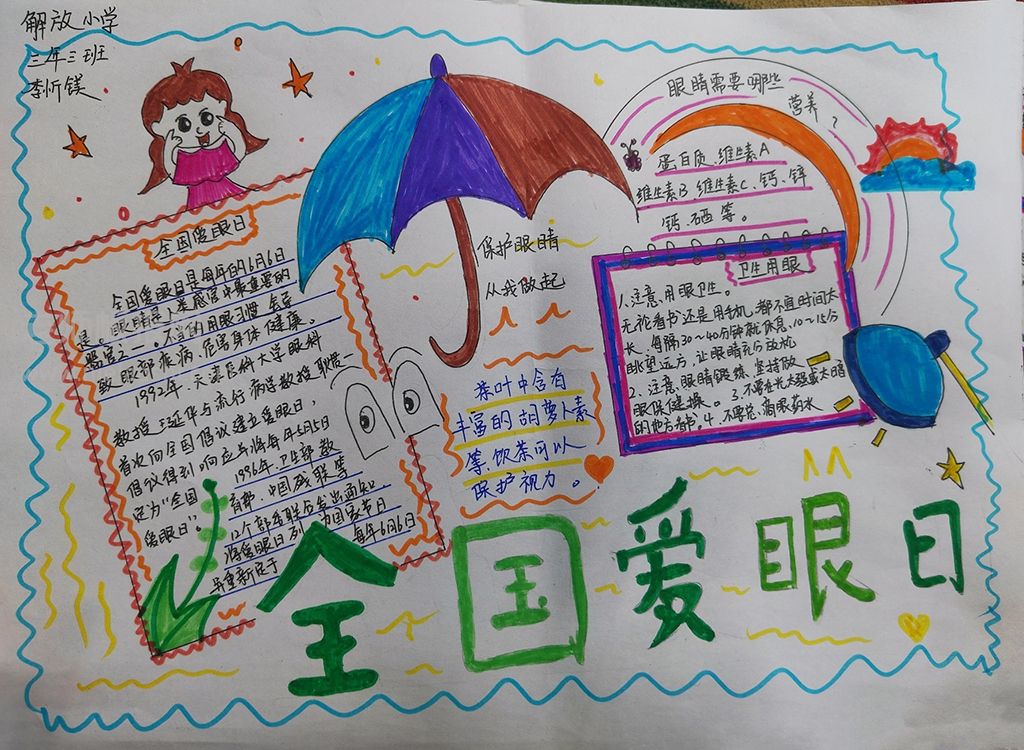 解放小学
三年三班
李忻镁
全国爱眼日
全国爱眼日是每年的6月6日
是。眼睛是人类感官中最重要的
器官之一。不当的用眼习惯会导
致眼部疾病，危害身体健康。
1992年，天津医科大学眼科
教授王延华与流行病学教授耿贯一
首次向全国倡议建立爱眼日，
倡议得到响应并将每年5月5日
定为“全国
爱眼日”。
1996年，卫生部、教
育部、中国残联等
12个部委联合发出通知，
将爱眼日列为国家节日
并重新定于
每年6月6日
保护眼睛
从我做起
茶叶中含有
丰富的胡萝卜素
等，饮茶可以
保护视力。
眼睛需要哪些
营养？
蛋白质、维生素A
维生素B、维生素C、钙、锌
钙、硒等。
卫生用眼
1、注意用眼卫生。
无论看书还是用手机，都不宜时间太
长，每隔30～40分钟就休息10～15分
眺望远方，让眼睛充分放松
2、注意眼睛锻炼，坚持做
眼保健操。3、不要在光太强或太暗
的地方看书。4、不要滴眼药水
全国爱眼日